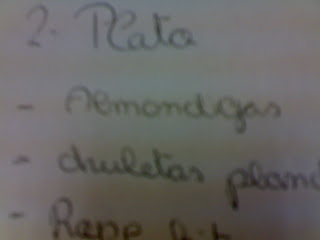 2. Plato
- Almondigas
- chuletas planc
- Rape